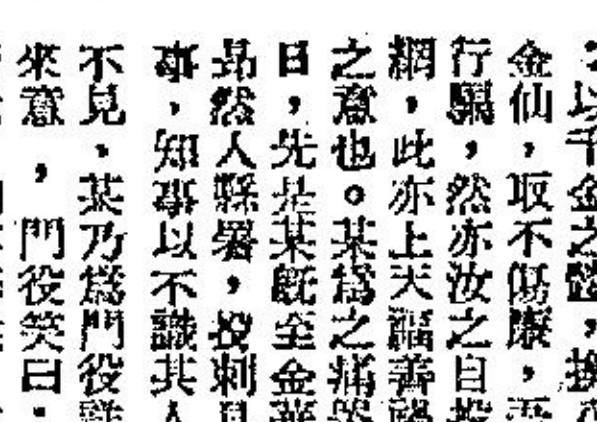 以千金之
金仙，取不傷廉，吾
行騙，然亦汝之自投
網，此亦上天福善禍
之意也。某爲之痛哭
日，先是某既至金華
昂然人縣署，投刺見
事，知事以不識其人
不見，某乃爲門役詳
來意，門役笑曰